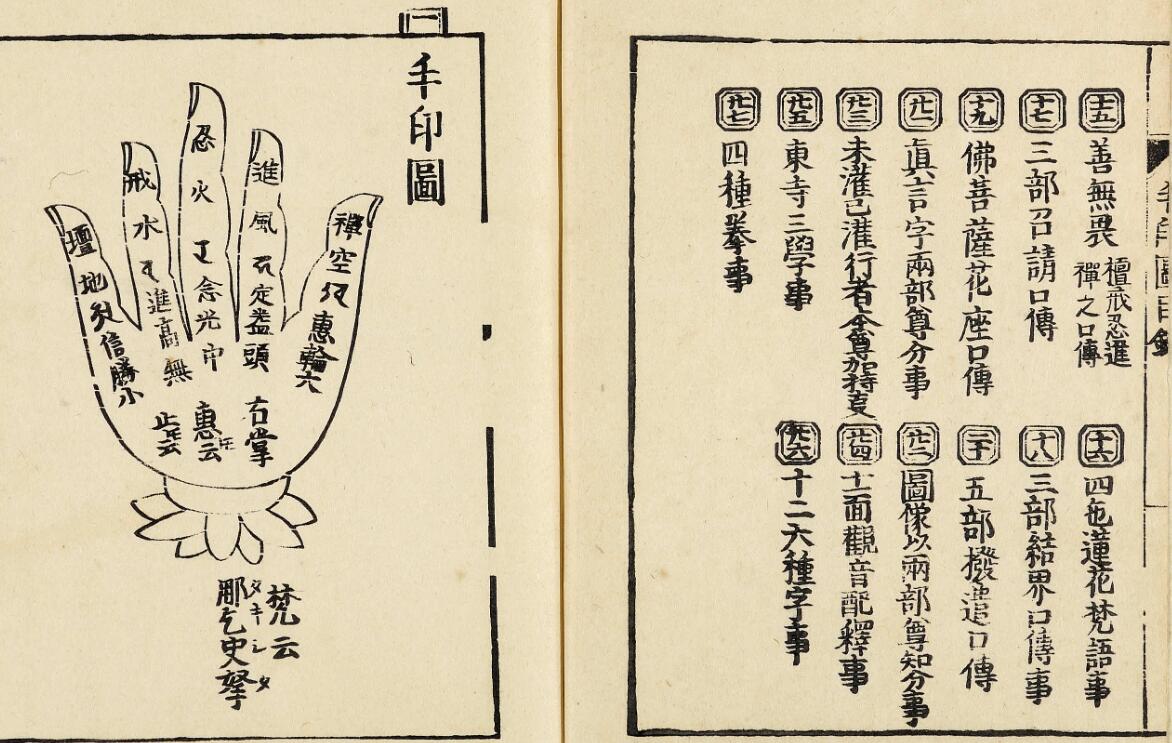 十五 善無畏 檀戒忍進
禪之口傳
十六 四色蓮花梵語事
十七 三部召請口傳
十八 三部結界口傳事
十九 佛菩薩花座口傳
二十 五部撥遣口傳
廿一 眞言字兩部尊分事
廿二 圖像以兩部尊知分事
廿三 未灌已灌行者本尊加持事
廿四 十一面觀音配釋事
廿五 東寺三學事
廿六 十二六種字事
廿七 四種拳事
一
手印圖
禪 空 惠輪六
進 風 定蓋頭
忍 火 念光中
戒 水 進高無
壇 地 信勝小
右掌
惠云
止云
梵云
タキシタ